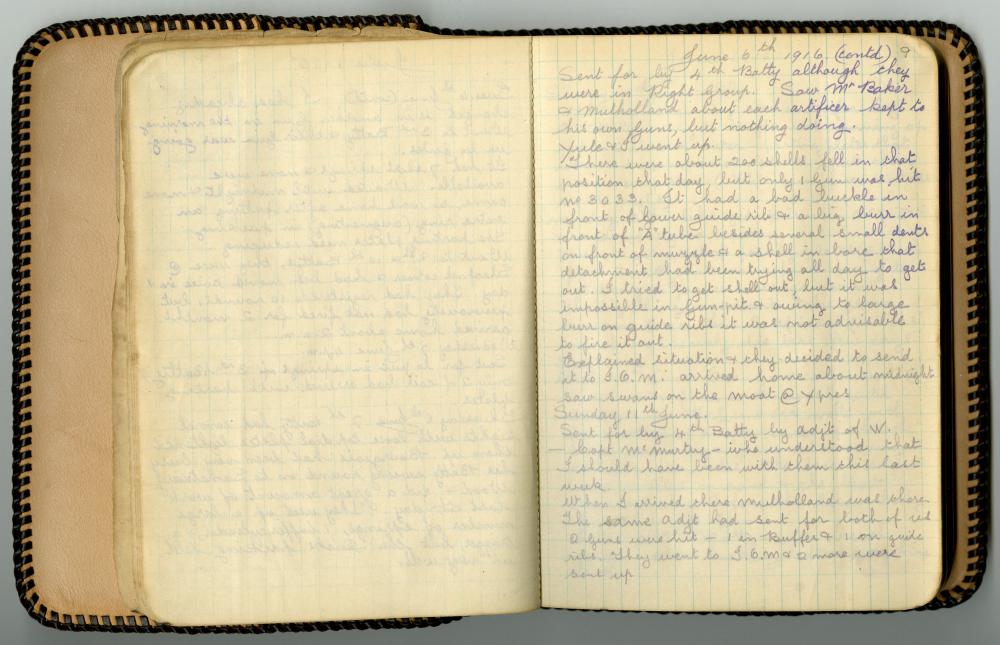 June 6th 1916 (contd) 9
Sent for by 4th Batty although they
were in Right Group. Saw Mr Baker
& Mulholland about each artificer kept to
his own guns, but nothing doing.
Yule & I went up.
There were about 200 shells fell in that
position that day, but only 1 gun was hit
no 3033. It had a bad buckle in
front of lower guide rib & a big burr in
front of "A" tube besides several small dents
on front of muzzle & a shell in bore that
detachment had been trying all day to get
out. I tried to get shell out, but it was
impossible in Gun-pit & owing to large
burr on guide ribs it was not advisable
to fire it out.
Explained situation & they decided to send
it to I.O.M. arrived home about midnight
saw swans on the moat @ Ypres
Sunday 11th June.
Sent for by 4th Batty by adjt of W.
– Capt McMurtry – who understood that
I should have been with them this last
week.
When I arrived there Mulholland was there
The same Adjt had sent for both of us
2 guns were hit – 1 in buffer & 1 on guide
ribs. They went to I.O.M & 2 more were
sent up